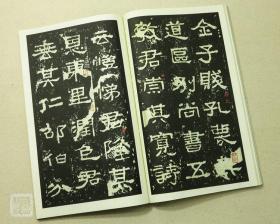 全子賤孔蔑
道區別尚書五
教君崇其寬詩
云愷悌君隆其
恩東里潤色君
垂其仁邵伯分